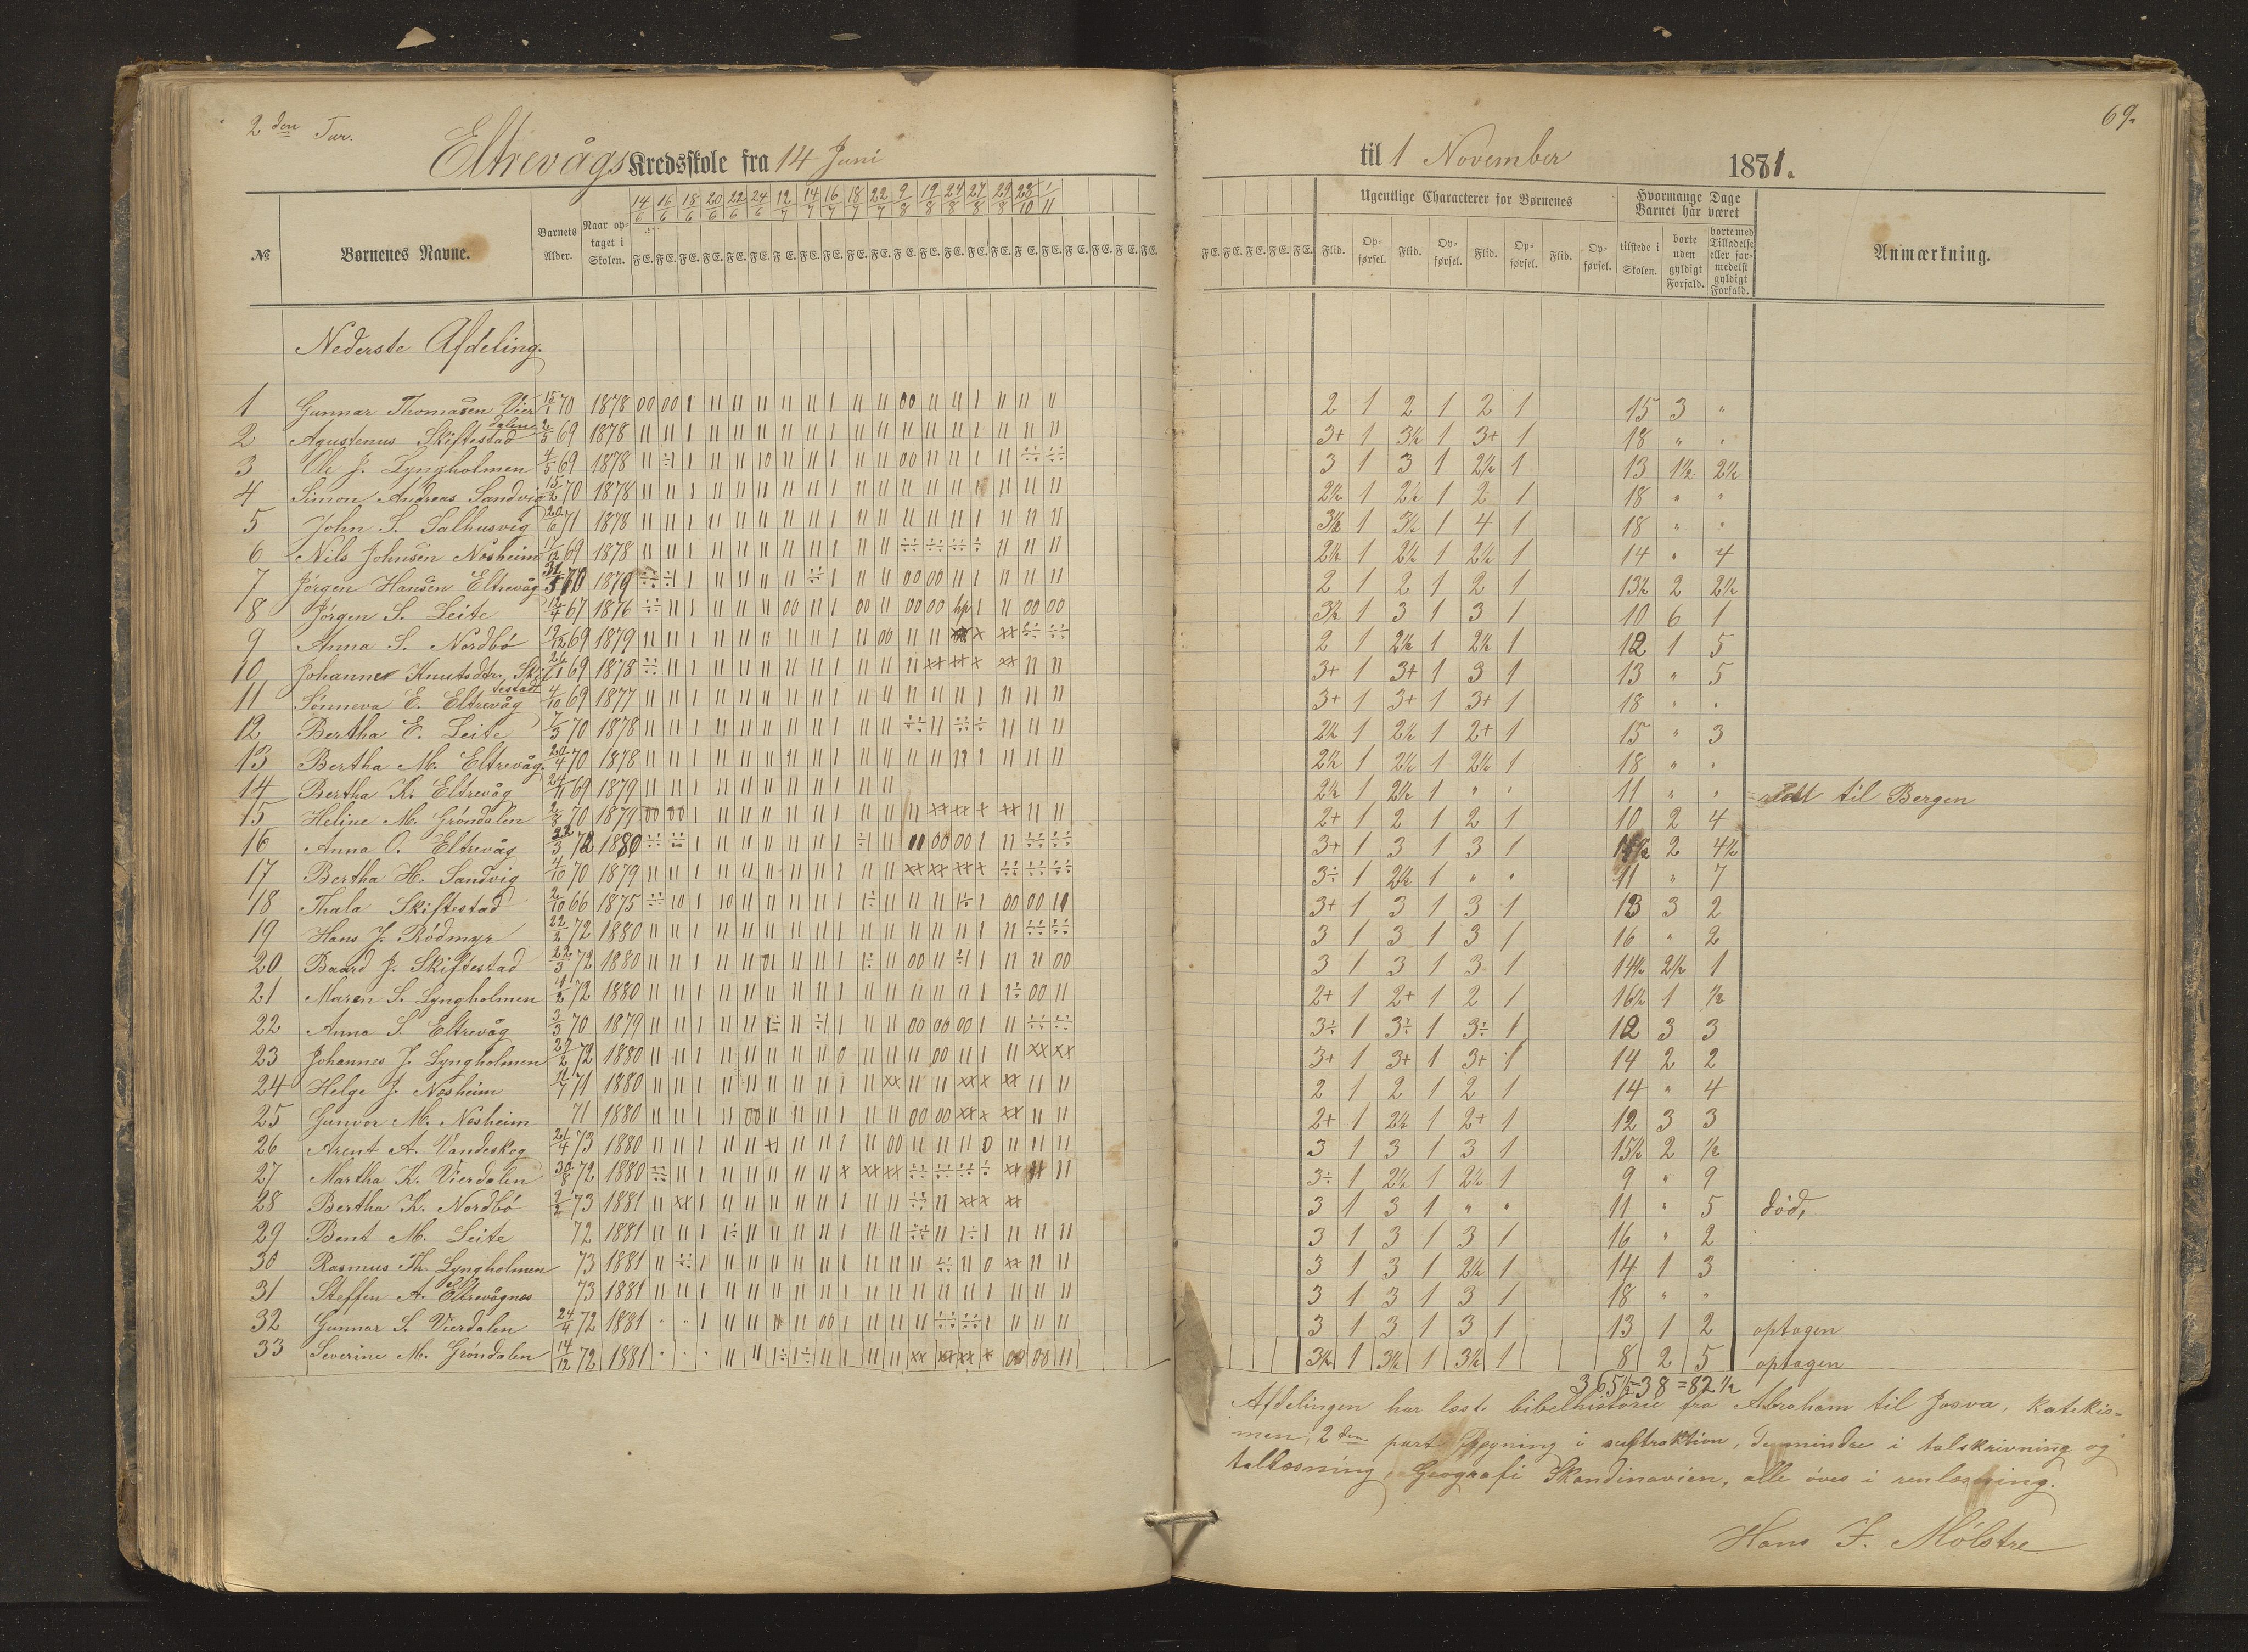 2den Tur.
69.
Eltrevågs Kredsskole fra 14 Juni til 1 November 1881.
14/6 16/6 18/6 20/6 22/6 24/6 12/7 14/7 16/7 18/7 22/7 9/8 19/8 24/8 27/8 29/8 28/10 1/11
№ Børnenes Navne. Barnets Alder. Naar optaget i Skolen. F E. F E. F E. F E. F E. F E. F E. F E. F E. F E. F E. F E. F E. F E. F E. F E. F E. F E. F E. F E. F E. F E.
F E. F E. F E. F E. F E. Ugentlige Characterer for Børnenes Flid. Opførsel. Flid. Opførsel. Flid. Opførsel. Flid. Opførsel. Hvormange Dage Barnet har været tilstede i Skolen. borte uden gyldigt Forfald. borte med Tilladelse eller formedelst gyldigt Forfald. Anmærkning.
Nederste Afdeling.
1 Gunnar Thomasen Vierdalen 15/1 70 1878 2 1 2 1 2 1 15 3 "
2 Agustenus Skiftestad 2/5 69 1878 3+ 1 3½ 1 3+ 1 18 " "
3 Ole J. Lyngholmen 4/5 69 1878 3 1 3 1 2½ 1 13 1½ 2½
4 Simon Andreas Sandvig 15/2 70 1878 2½ 1 2½ 1 2 1 18 " "
5 John S. Salhusvig 20/6 71 1878 3½ 1 3½ 1 4 1 18 " "
6 Nils Johnsen Nesheim 17/12 69 1878 2½ 1 2½ 1 2½ 1 14 " 4
7 Jörgen Hansen Eltrevåg 70 1879 2 1 2 1 2 1 13½ 2 2½
8 Jörgen S. Leite 12/4 67 1876 3½ 1 3 1 3 1 10 6 1
9 Anna S. Nordbö 19/12 69 1879 2 1 2½ 1 2½ 1 12 1 5
10 Johanne Knutsdtr. Skiftestad 69 1878 3+ 1 3+ 1 3 1 13 " 5
11 Sönneva E. Eltrevåg 4/10 69 1877 3+ 1 3+ 1 3+ 1 18 " "
12 Bertha E. Leite 7/3 70 1878 2½ 1 2½ 1 2+ 1 15 " 3
13 Bertha M. Eltrevåg. 20/4 70 1878 2½ 1 2½ 1 2½ 1 18 " "
14 Bertha K. Eltrevåg 24/11 69 1879 2½ 1 2½ 1 " " 11 " " til Bergen
15 Heline M. Gröndalen 2/8 70 1879 2+ 1 2 1 2 1 10 2 4
16 Anna O. Eltrevåg 22/3 72 1880 3+ 1 3 1 3 1 2 4½
17 Bertha H. Sandvig 4/10 70 1879 3÷ 1 2½ 1 " " 11 " 7
18 Thala Skiftestad 2/10 66 1875 3+ 1 3 1 3 1 13 3 2
19 Hans J. Rödmyr 22/2 72 1880 3 1 3 1 3 1 16 " 2
20 Baard J. Skiftestad 22/3 72 1880 3 1 3 1 3 1 14½ 2½ 1
21 Maren S. Lyngholmen 72 1880 2+ 1 2+ 1 2 1 16½ 1 ½
22 Anna S. Eltrevåg 3/3 70 1879 3÷ 1 3÷ 1 3÷ 1 12 3 3
23 Johannes J. Lyngholmen 29/2 72 1880 3+ 1 3+ 1 3+ 1 14 2 2
24 Helge J. Nesheim 11/7 71 1880 2 1 2 1 2 1 14 " 4
25 Gunvor M. Nesheim 71 1880 2+ 1 2½ 1 2+ 1 12 3 3
26 Arent A. Vandeskog 21/4 73 1880 3 1 3 1 3 1 15½ 2 ½
27 Martha K. Vierdalen 30/8 72 1880 3÷ 1 2½ 1 2½ 1 9 " 9
28 Bertha K. Nordbö 9/2 73 1881 3 1 3 1 " " 11 " 5 död,
29 Bent M. Leite 72 1881 3 1 3 1 3 1 16 " 2
30 Rasmus Th. Lyngholmen 73 1881 3 1 3 1 2½ 1 14 1 3
31 Steffen A. Eltrevågnes 73 1881 3 1 3 1 3 1 18 " "
32 Gunnar S. Vierdalen 24/4 72 1881 3 1 3 1 3 1 13 1 2 optagen
33 Severine M. Gröndalen 14/12 72 1881 3½ 1 3½ 1 3½ 1 8 2 5 optagen
365½=38=82½
Afdelingen har læst bibelhistorie fra Abraham til Josva, katekis-
men, 2den part Regning i subtraktion, de mindre i talskrivning og
tallæsning. Geografi Skandinavien, alle öves i renlæsning.
Hans J. Mölstre